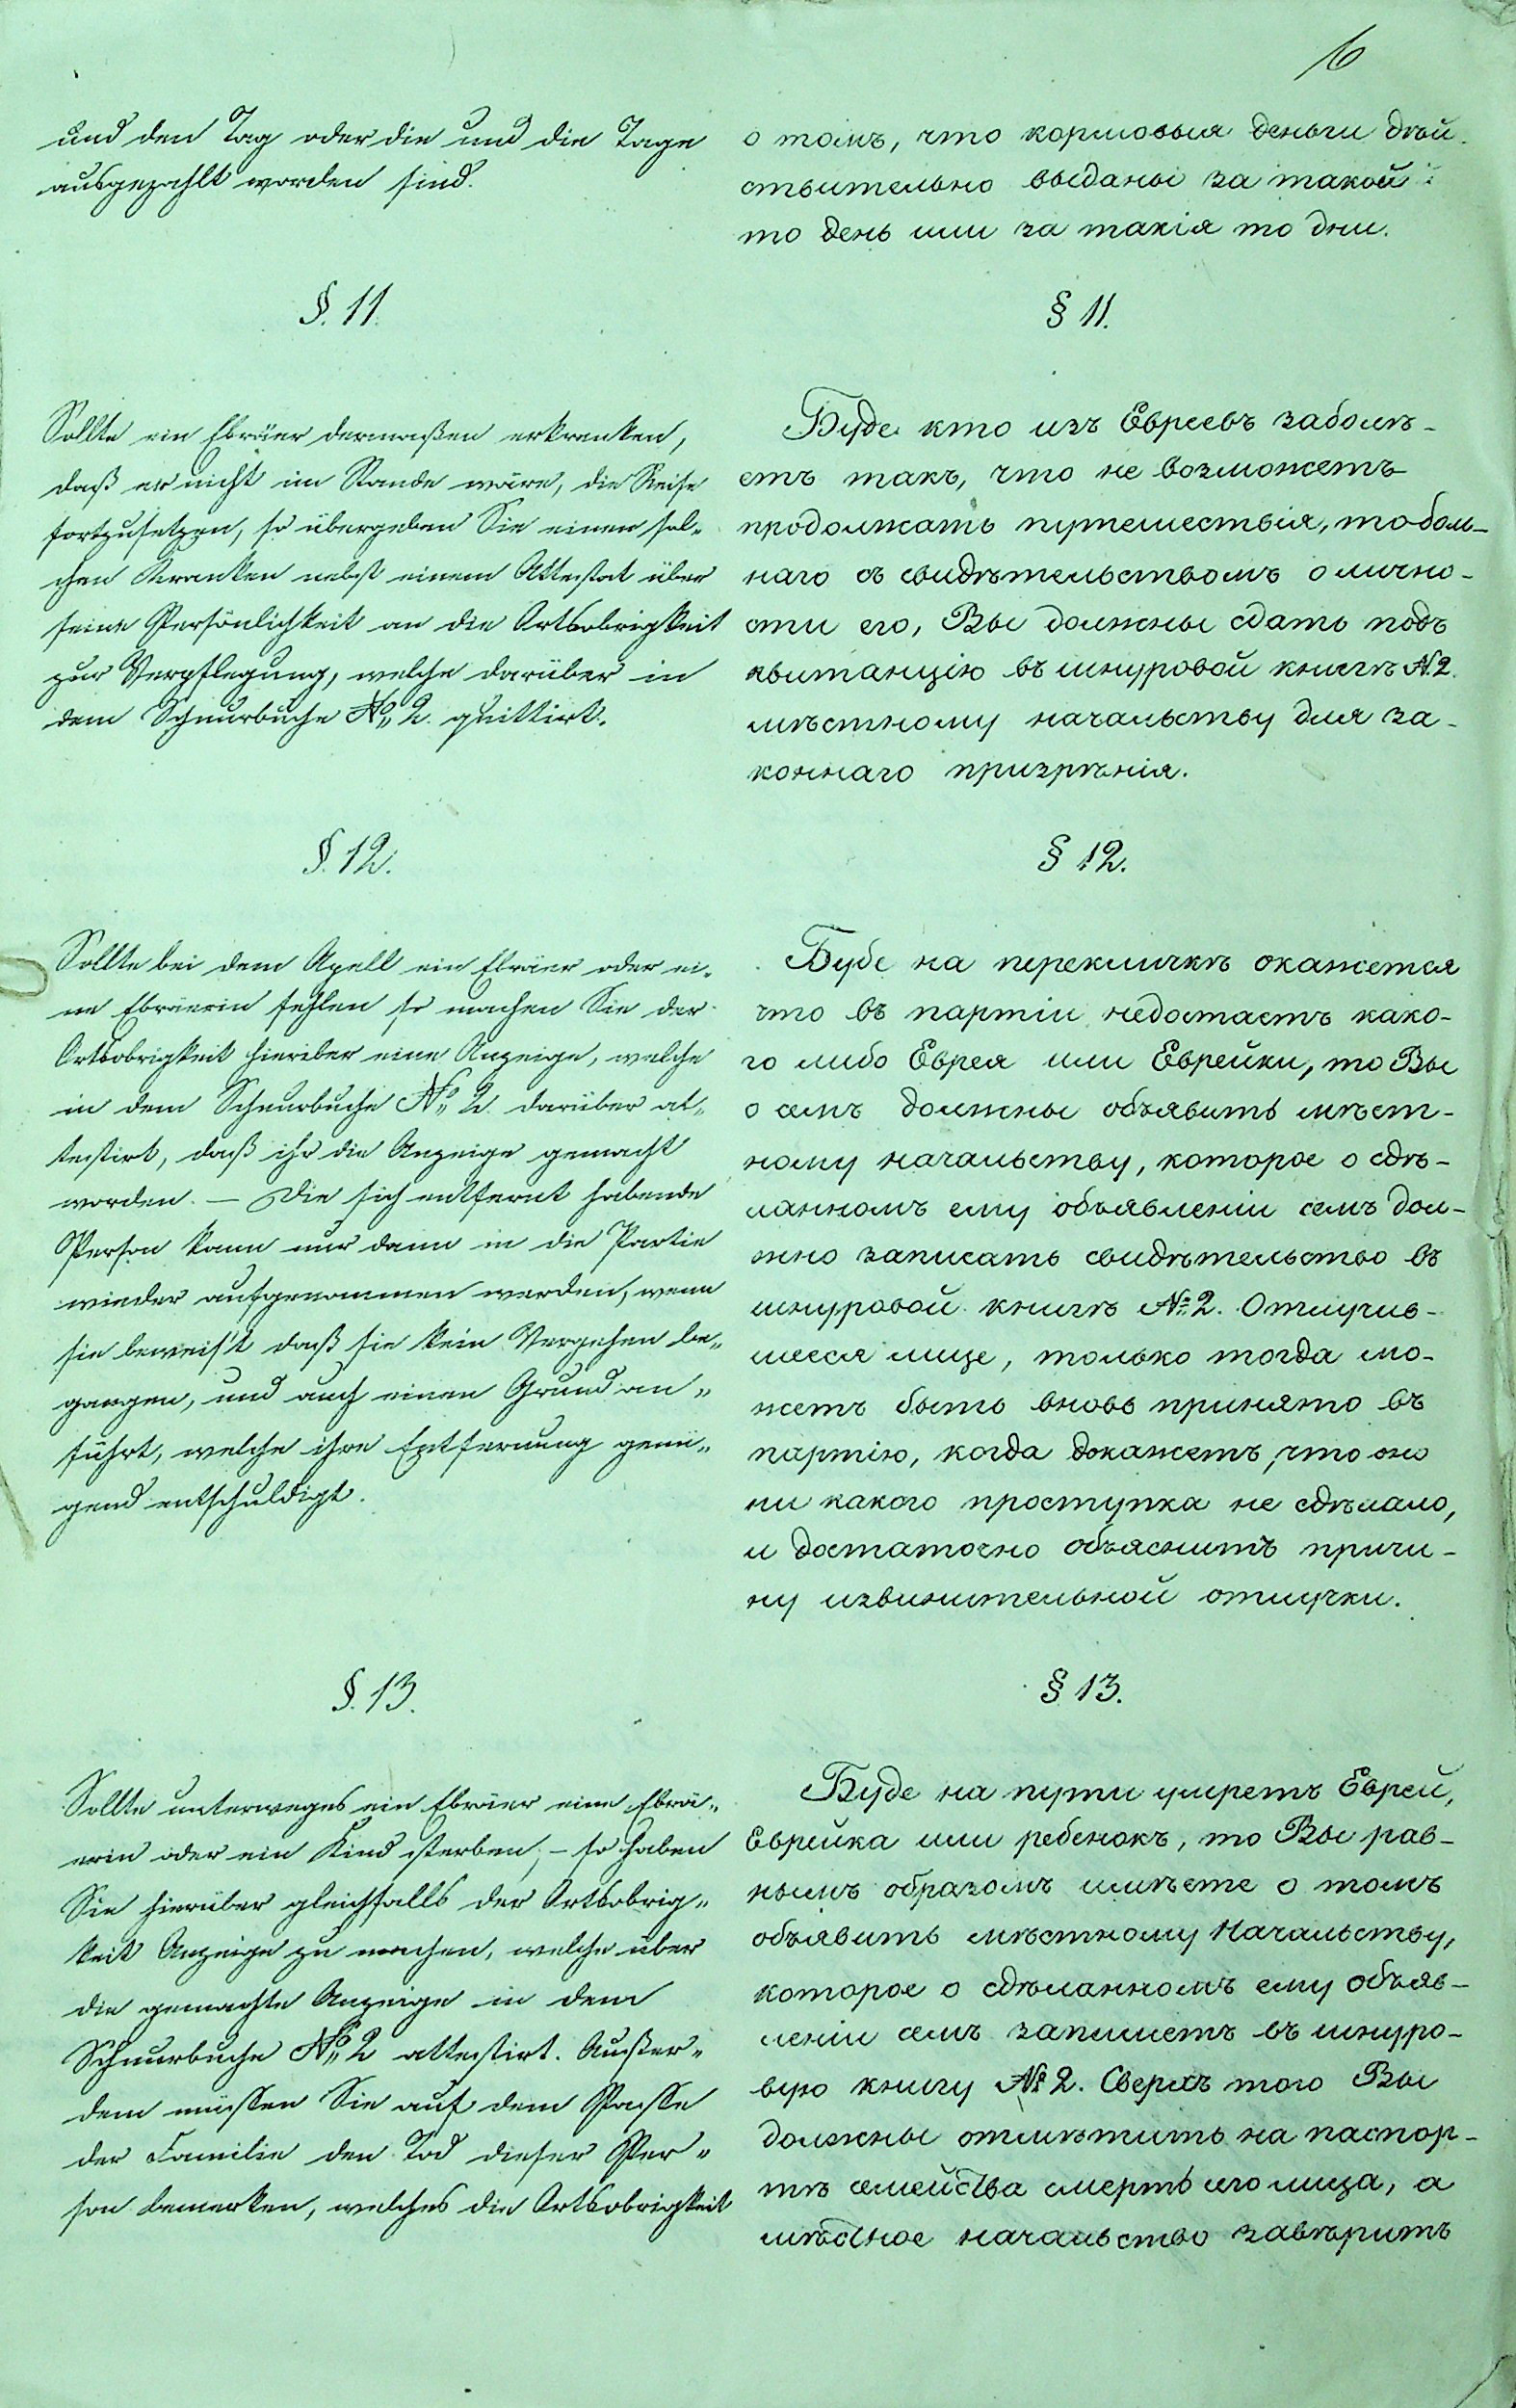 6
und den Tag oder die und die Tage
ausgezahlt worden sind.
§. 11.
Sollte ein Ebräer dermaßen erkranken,
daß er nicht im Stande wäre, die Reise
fortzusetzen, so übergeben Sie einen sol„
chen Kranken nebst einem Attestat über
seine Persönlichkeit an die Ortsobrigkeit
zur Verpflegung, welche darüber in
dem Schnurbuche No 2. quittirt.
§. 12.
Sollte bei dem Apell ein Ebräer oder ei„
ne Ebräerin fehlen so machen Sie der
Ortsobrigkeit hierüber eine Anzeige, welche
in dem Schnurbuche No 2. darüber at„
testirt, daß ihr die Anzeige gemacht
worden. – Die sich entfernt habende
Person kann nur dann in die Partie
wieder aufgenommen werden, wenn
sie beweis't daß sie kein Vergehen be„
gangen, und auch einen Grund an„
führt, welche ihre Entfernung genü„
gend entschuldigt.
§. 13.
Sollte unterweges ein Ebräer eine Ebrä„
erin oder ein Kind sterben, – so haben
Sie hierüber gleichfalls der Ortsobrig„
keit Anzeige zu machen, welche über
die gemachte Anzeige in dem
Schnurbuche No 2 attestirt. Außer„
dem müssen Sie auf dem Passe
der Familie den Tod dieser Per„
son bemerken, welches die Ortsobrigkeit
о томъ, что кормовыя деньги дѣй-
ствительно выданы за такой
то день или за такія то дни.
§ 11.
Буде кто изъ Евреевъ заболѣ-
етъ такъ, что не возможетъ
продолжать путешествія, то боль-
наго съ свидѣтельствомъ о лично-
сти его, Вы должны сдать подъ
квитанцію въ шнуровой книгѣ № 2.
мѣстному начальству для за-
коннаго призрѣнія.
§ 12.
Буде на перекличкѣ окажется
что въ партіи недостаетъ како-
го либо Еврея или Еврейки, то Вы
о семъ должны объявить мѣст-
ному начальству, которое о сдѣ-
ланномъ ему объявленіи семъ дол-
жно записать свидѣтельство въ
шнуровой книгѣ № 2. Отлучив-
шееся лице, только тогда мо-
жетъ быть вновь принято въ
партію, когда докажетъ, что оно
ни какого проступка не сдѣлало,
и достаточно объяснитъ причи-
ну извинительной отлучки.
§ 13.
Буде на пути умретъ Еврей,
Еврейка или ребенокъ, то Вы рав-
нымъ образомъ имѣете о томъ
объявить мѣстному Начальству,
которое о сдѣланномъ ему объяв-
леніи семъ запишетъ въ шнуро-
вую книгу № 2. Сверхъ того Вы
должны отмѣтить на паспор-
тѣ семейства смерть сего лица, а
мѣстное начальство завѣритъ